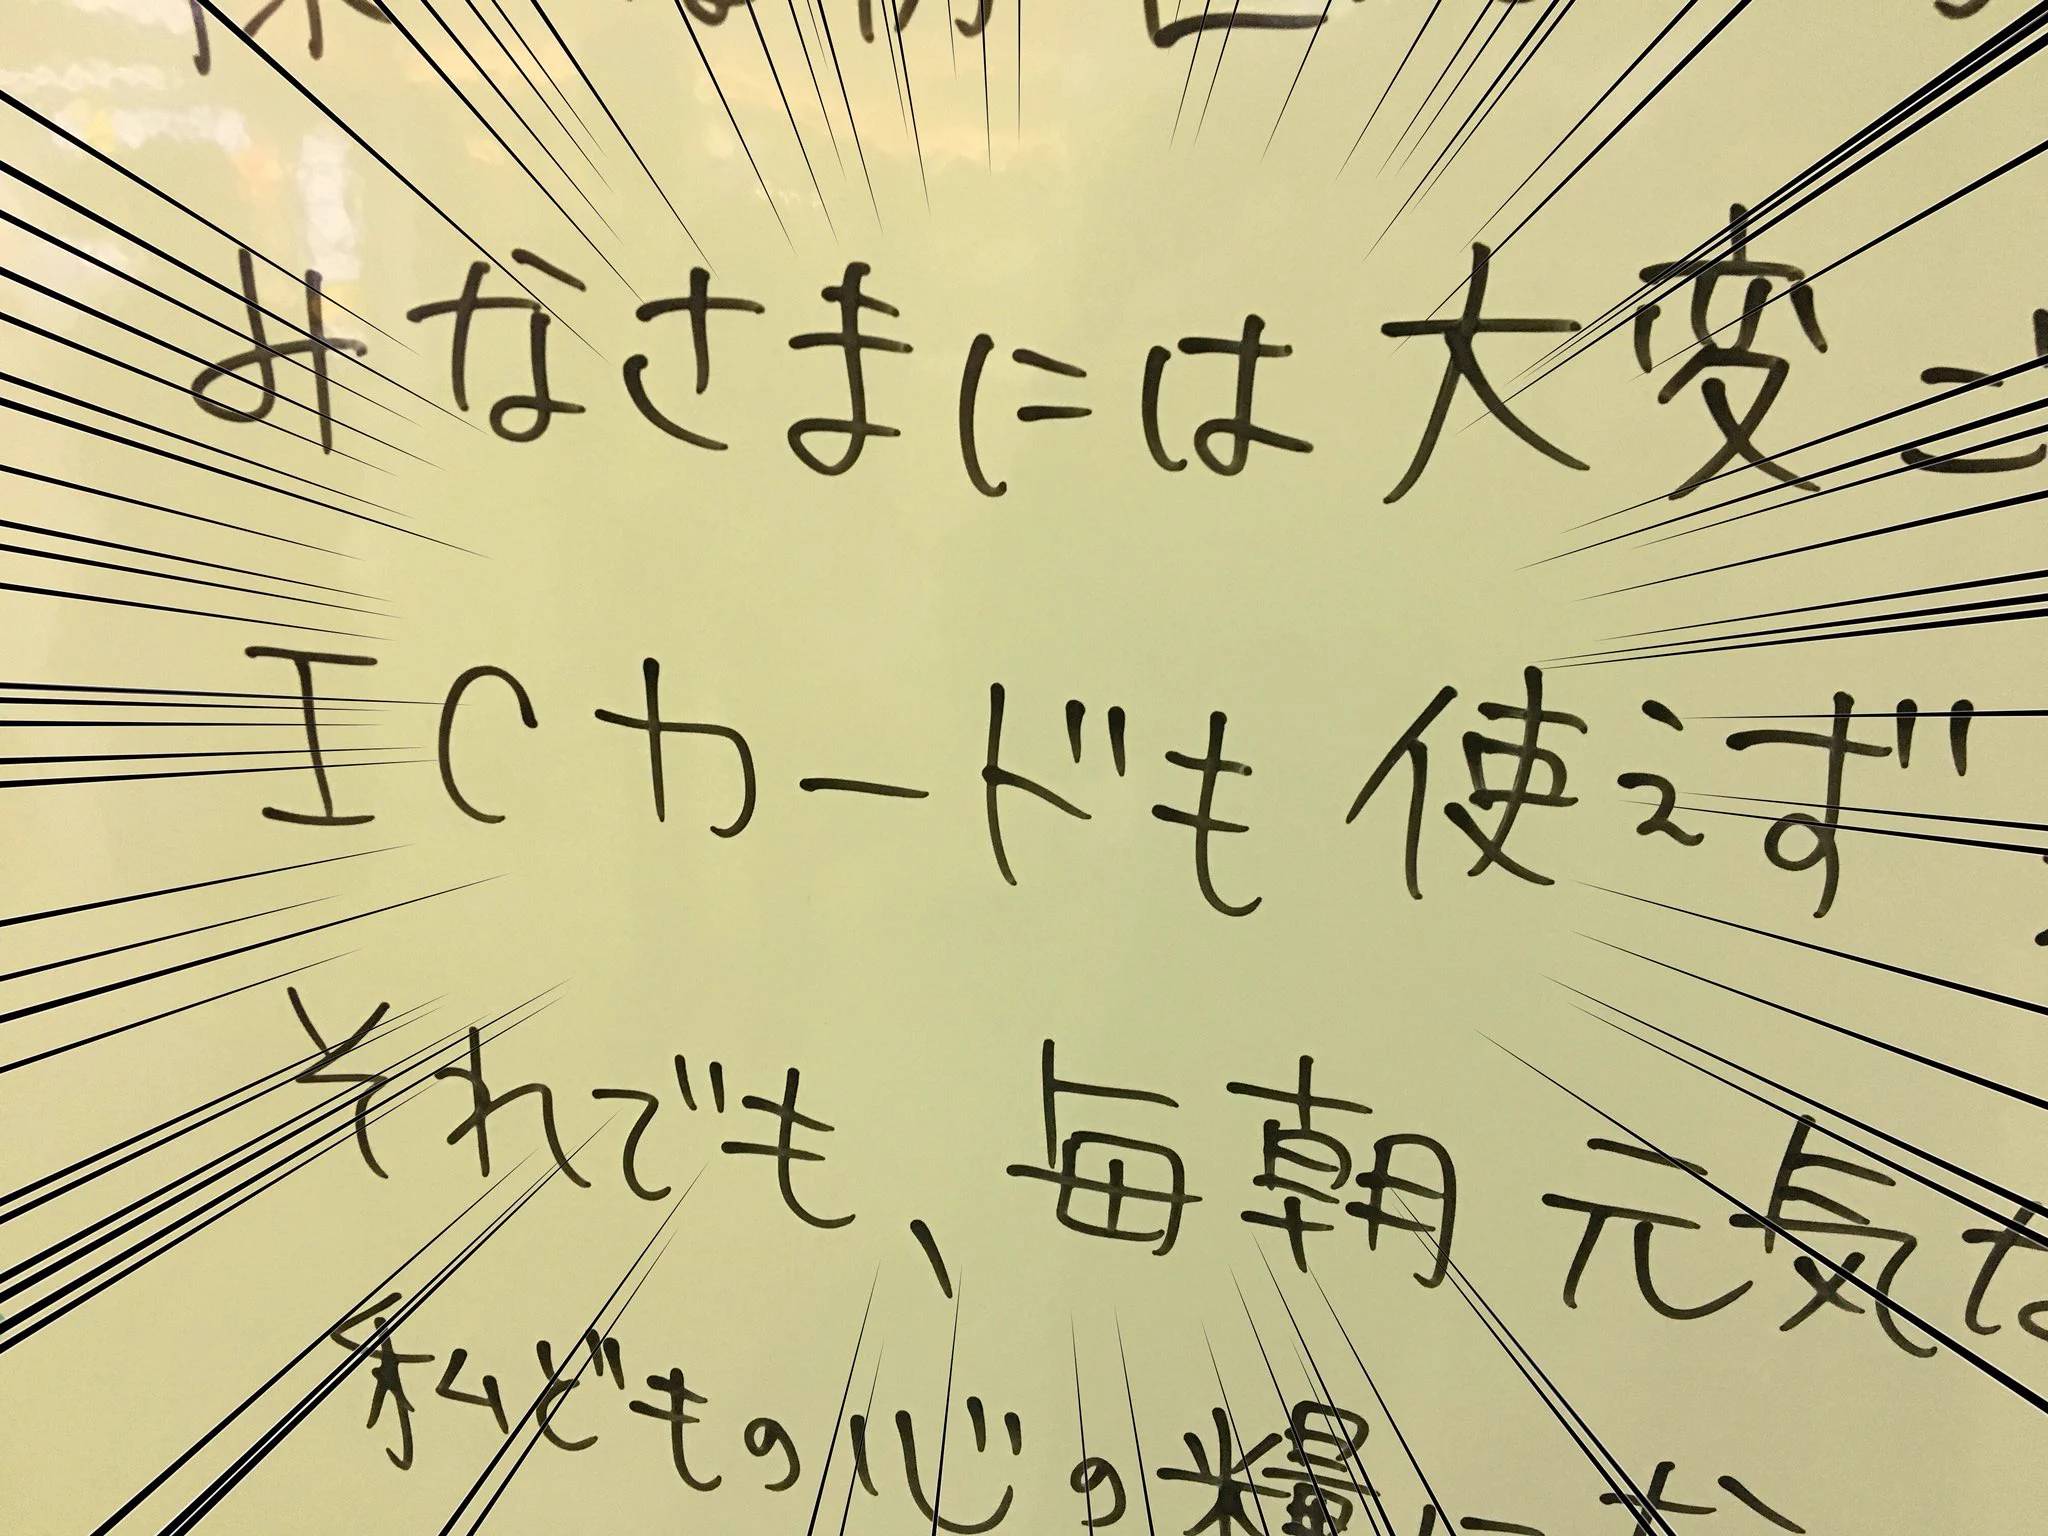 みなさまには大変ご
ICカードも使えず
それでも、毎朝元気な
私どもの心の糧に な